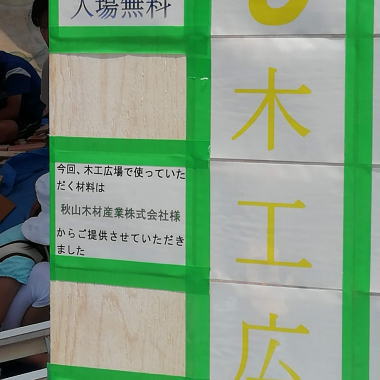 入場無料
今回、木工広場で使っていた
だく材料は
秋山木材産業株式会社様
からご提供させていただき
ました
木
工
広